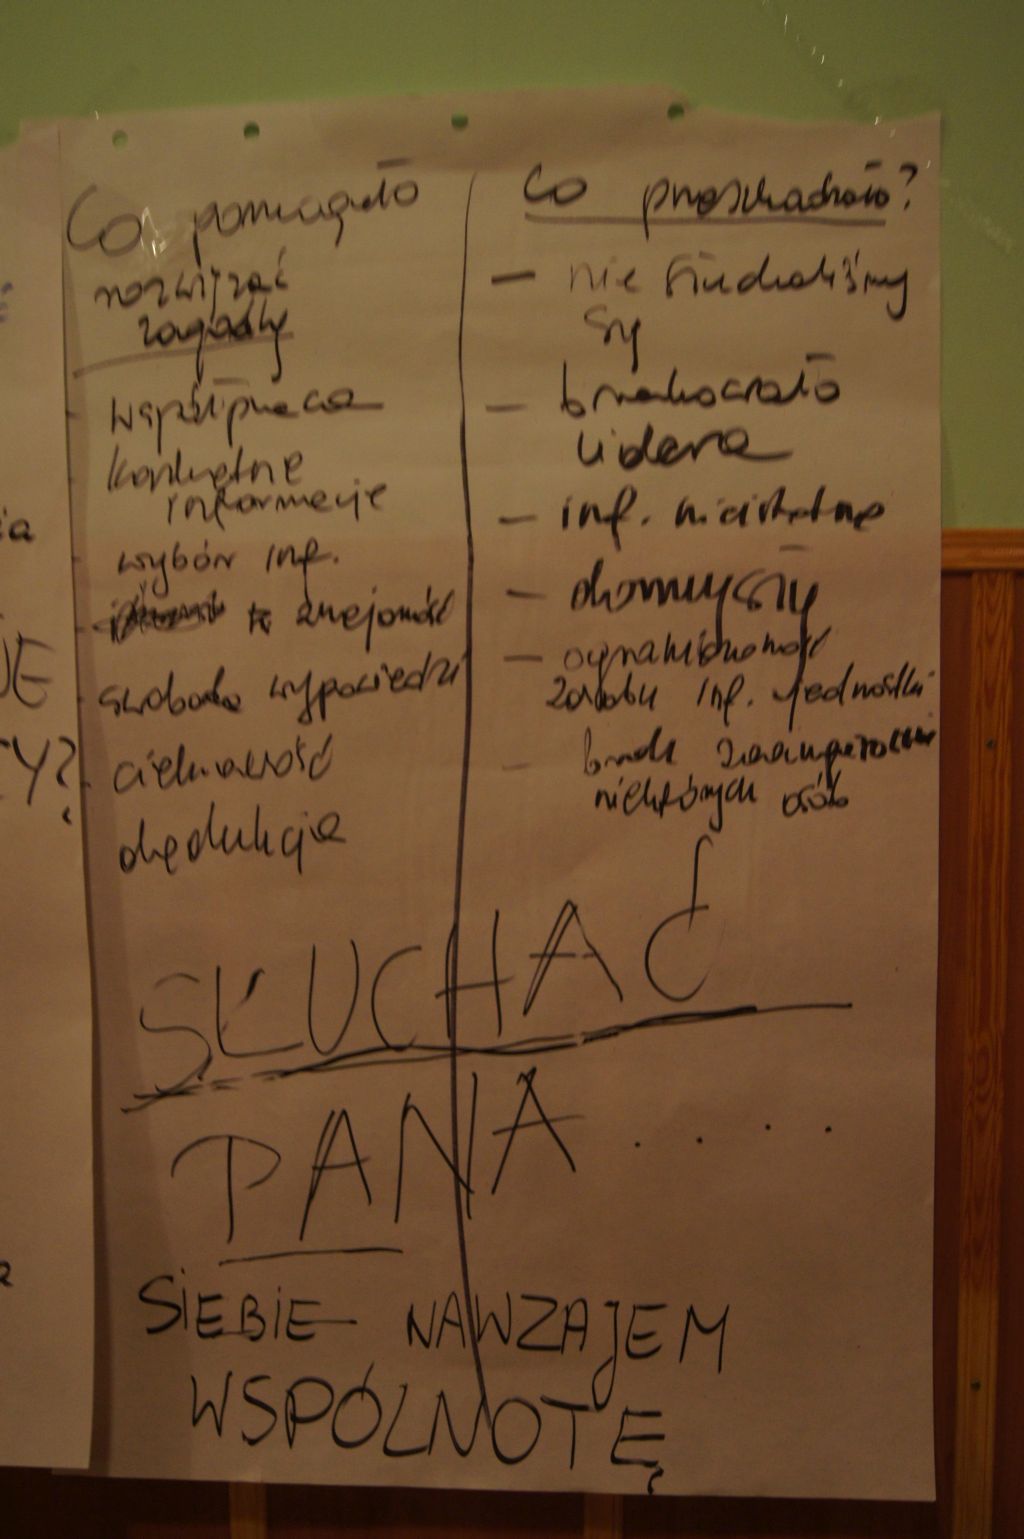 Co pomagało
rozwiązać
zagadkę
- współpraca
- konkretne
informacje
- wybór inf.
- znajomość
- swoboda wypowiedzi
- ciekawość
dedukcja
Co przeszkadzało?
- nie słuchaliśmy
się
- brakowało
lidera
- inf. nieistotne
- domysły
- ograniczoność
zasobu inf. jednostki
- brak zaangażowania
niektórych osób
SŁUCHAĆ
PANA . . . .
SIEBIE NAWZAJEM
WSPÓLNOTĘ